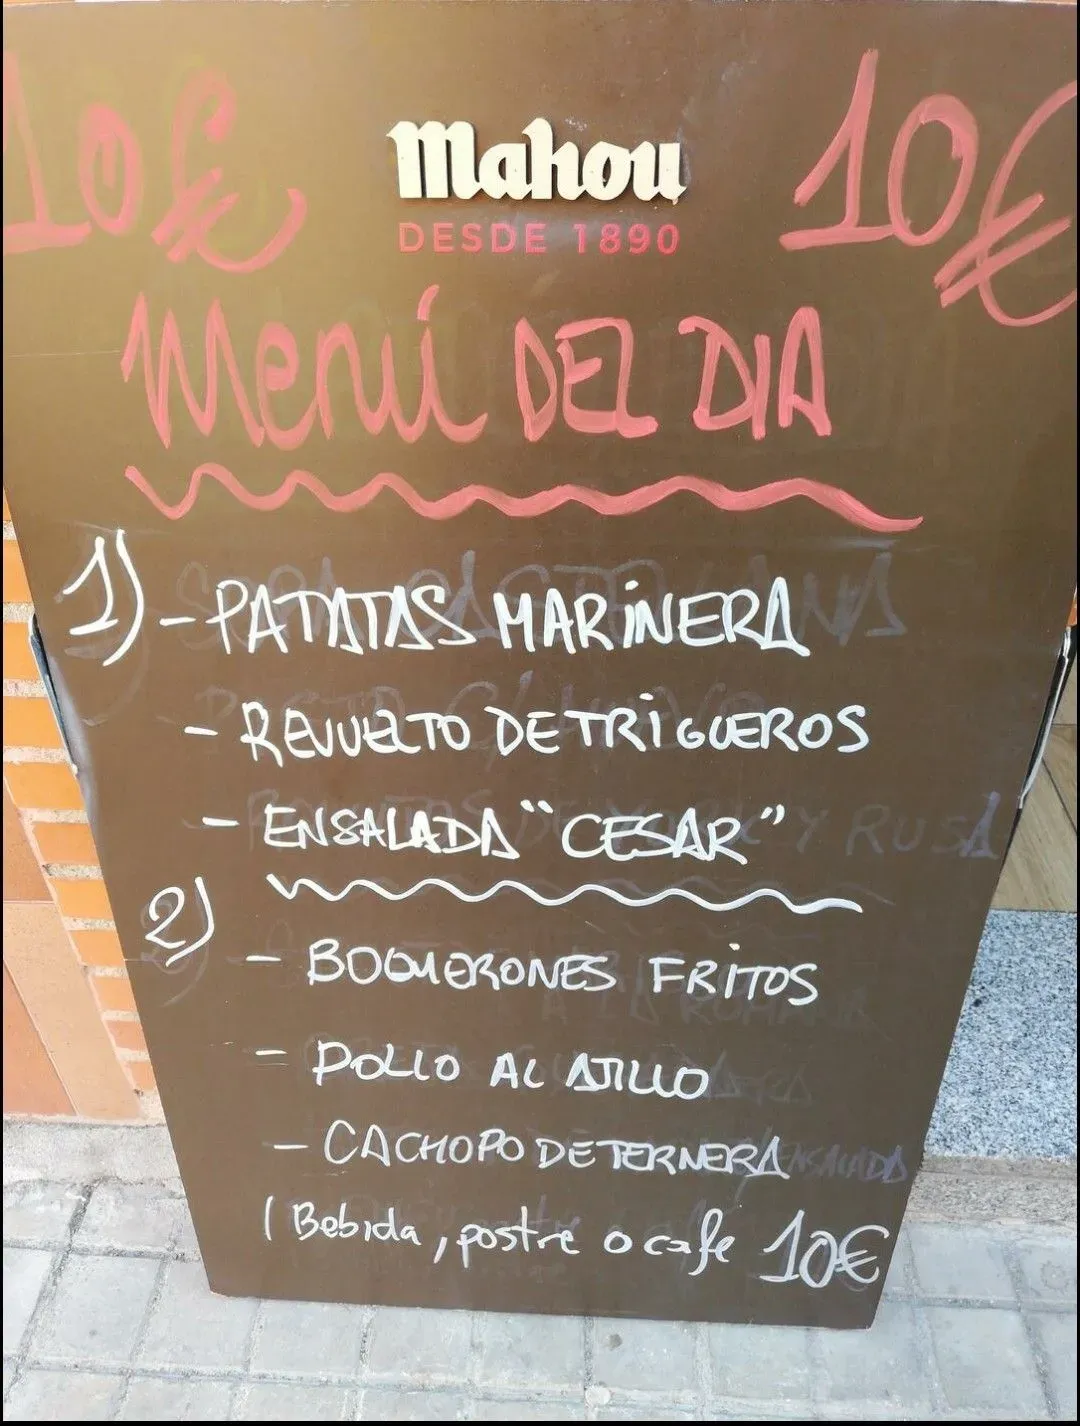 10€ Mahou 10€
DESDE 1890
Menú DEL DIA
1) - PATATAS MARINERA
- REVUELTO DE TRIGUEROS
- ENSALADA "CESAR"
2)
- BOQUERONES FRITOS
- POLLO AL AJILLO
- CACHOPO DE TERNERA
( Bebida, postre o cafe 10€